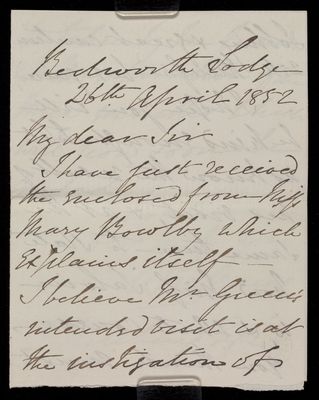 Bedworth Lodge
26th April 1852
My dear Sir
I have just received
the enclosed from Miss
Mary Bowlby which
explains itself
I believe Mr Green's
intended visit is at
the instigation of